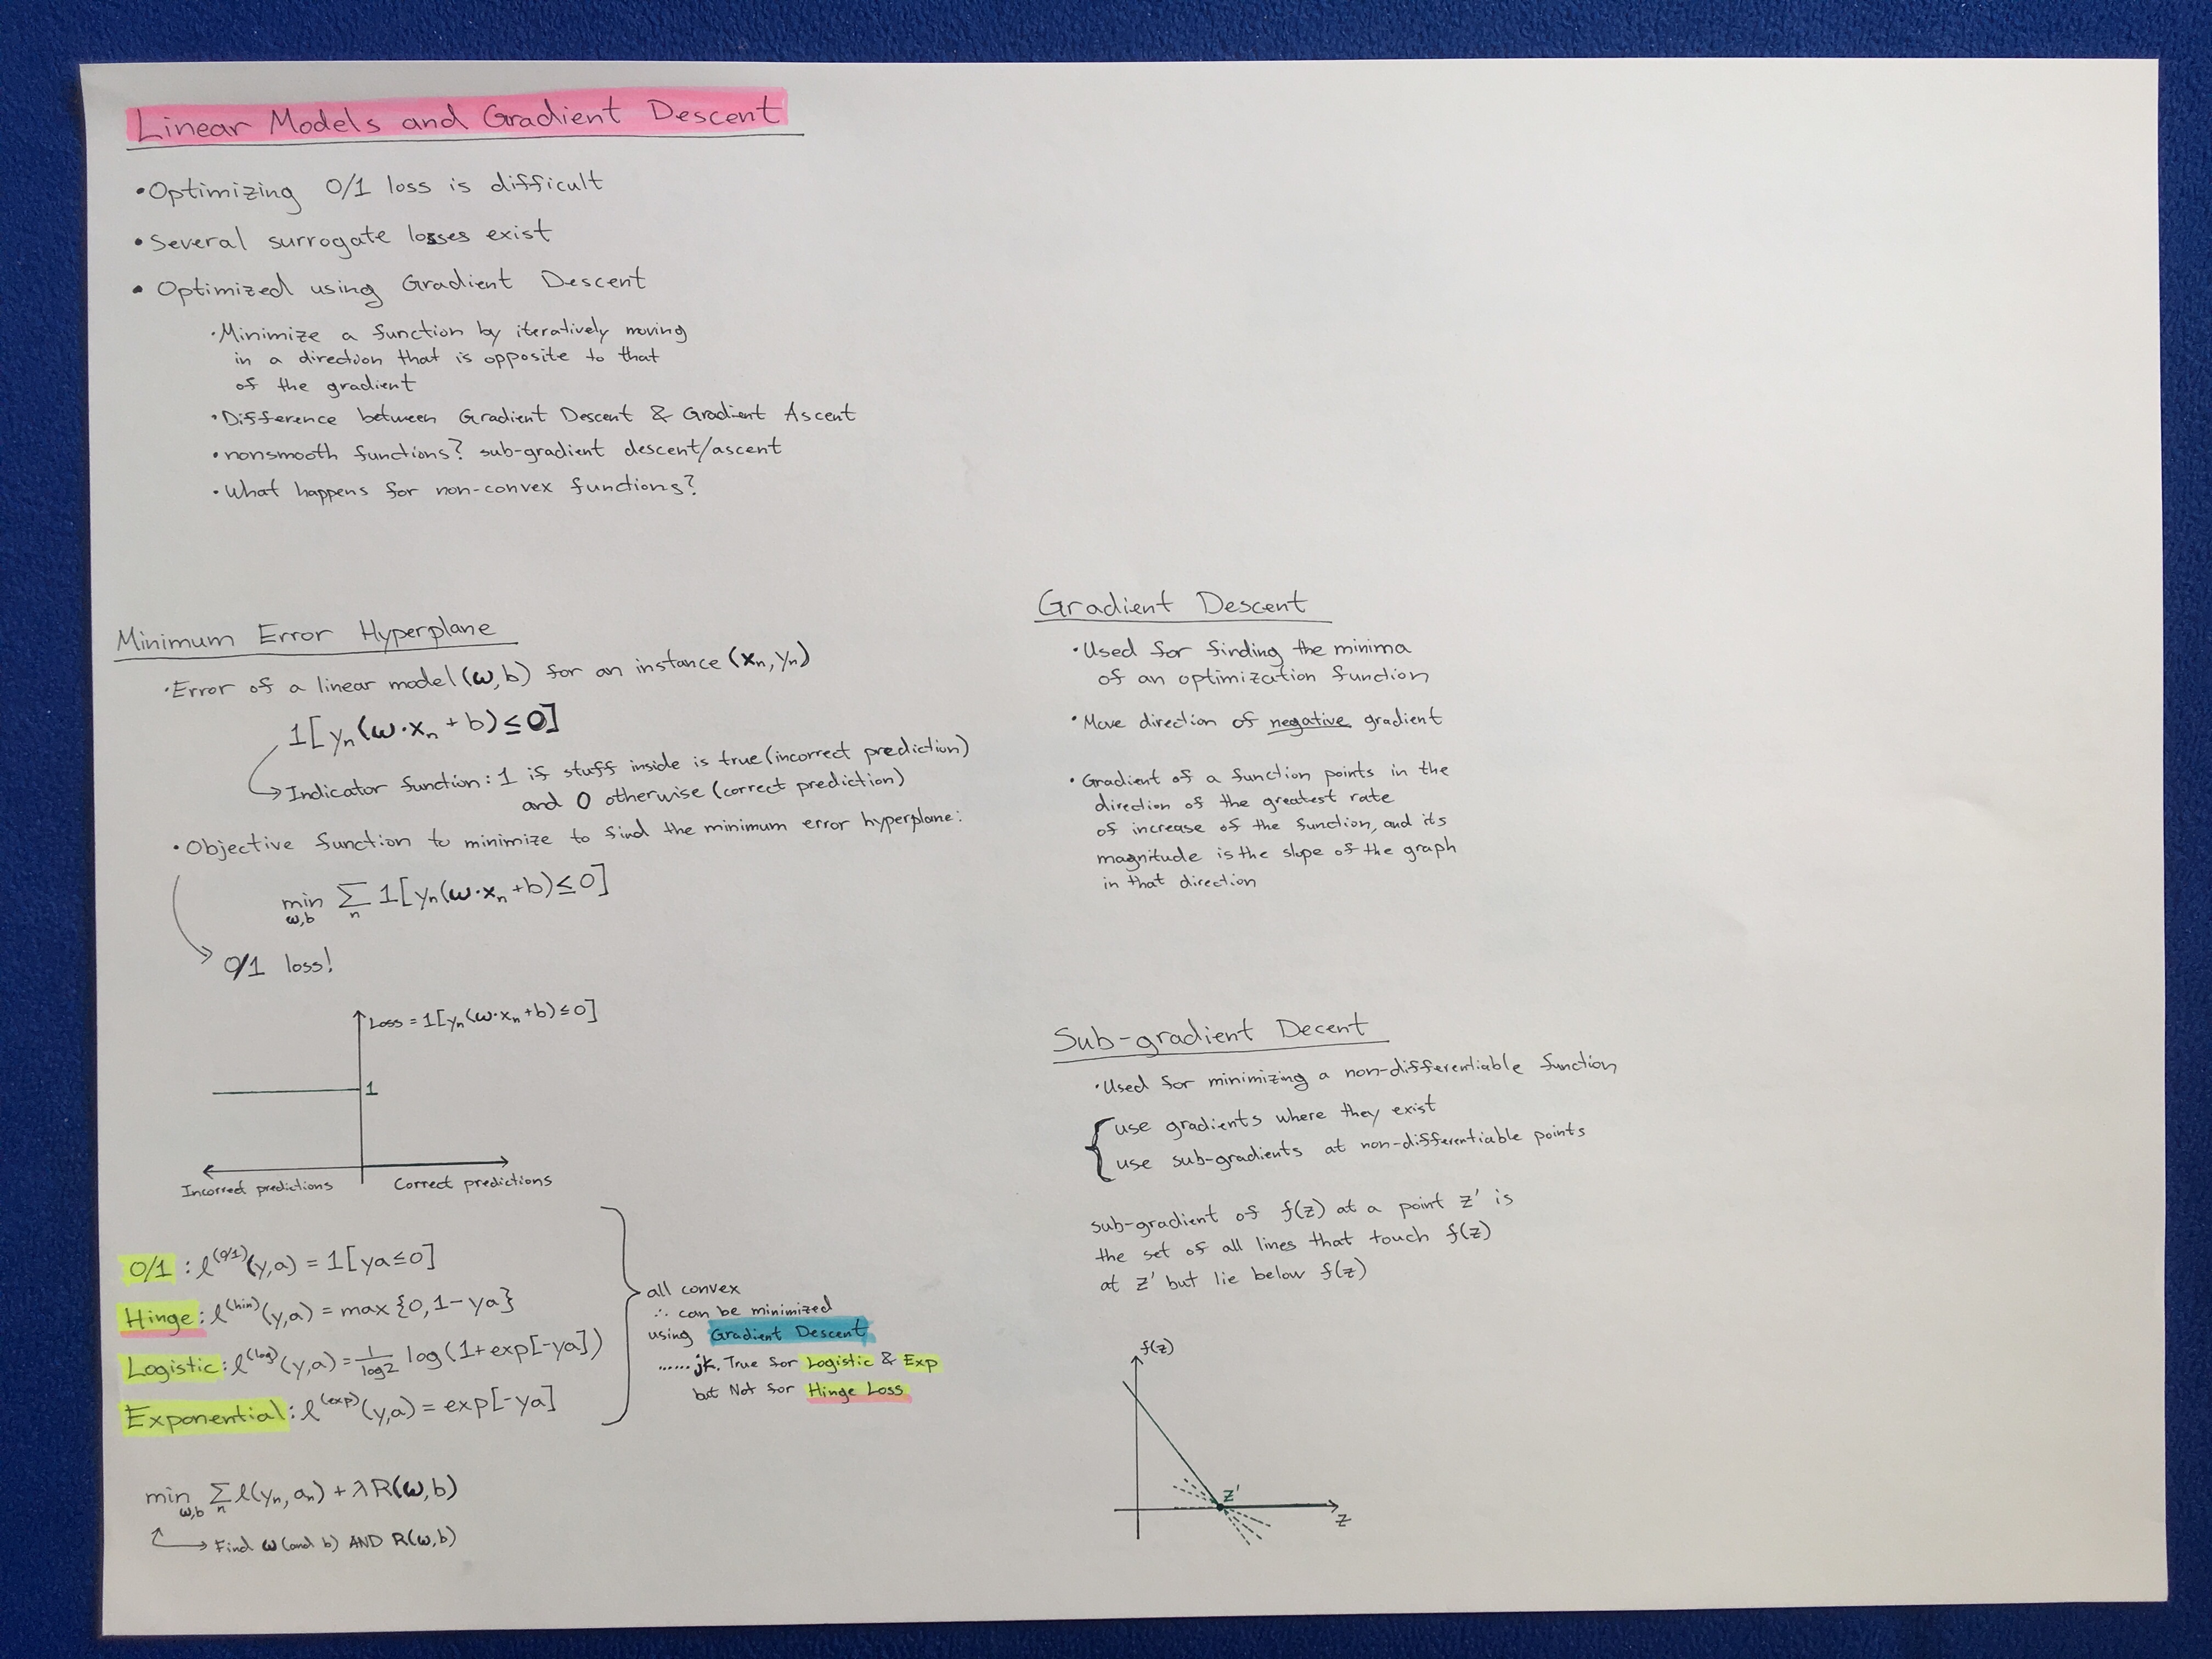 Linear Models and Gradient Descent
•Optimizing 0/1 loss is difficult
•Several surrogate losses exist
• Optimized using Gradient Descent
•Minimize a function by iteratively moving
in a direction that is opposite to that
of the gradient
•Difference between Gradient Descent & Gradient Ascent
•nonsmooth functions? sub-gradient descent/ascent
•What happens for non-convex functions?
Minimum Error Hyperplane
•Error of a linear model (ω,b) for an instance (xₙ,yₙ)
1[yₙ(ω·xₙ+b)≤0]
Indicator function: 1 if stuff inside is true (incorrect prediction)
and 0 otherwise (correct prediction)
•Objective function to minimize to find the minimum error hyperplane:
min Σ 1[yₙ(ω·xₙ+b)≤0]
ω,b n
0/1 loss!
Loss = 1[yₙ(ω·xₙ+b)≤0]
1
Incorrect predictions Correct predictions
0/1 : ℓ⁽⁰/¹⁾(y,a) = 1[ya≤0]
Hinge: ℓ^(hin)(y,a) = max{0,1-ya}
Logistic: ℓ^(log)(y,a) = 1/log2 log(1+exp[-ya])
Exponential: ℓ^(exp)(y,a) = exp[-ya]
all convex
∴ can be minimized
using Gradient Descent
......jk. True for Logistic & Exp
but Not for Hinge Loss
min Σ ℓ(yₙ,aₙ) + λR(ω,b)
ω,b n
Find ω (and b) AND R(ω,b)
Gradient Descent
•Used for finding the minima
of an optimization function
•Move direction of negative gradient
•Gradient of a function points in the
direction of the greatest rate
of increase of the function, and its
magnitude is the slope of the graph
in that direction
Sub-gradient Decent
•Used for minimizing a non-differentiable function
use gradients where they exist
use sub-gradients at non-differentiable points
sub-gradient of f(z) at a point z' is
the set of all lines that touch f(z)
at z' but lie below f(z)
f(z)
z'
z